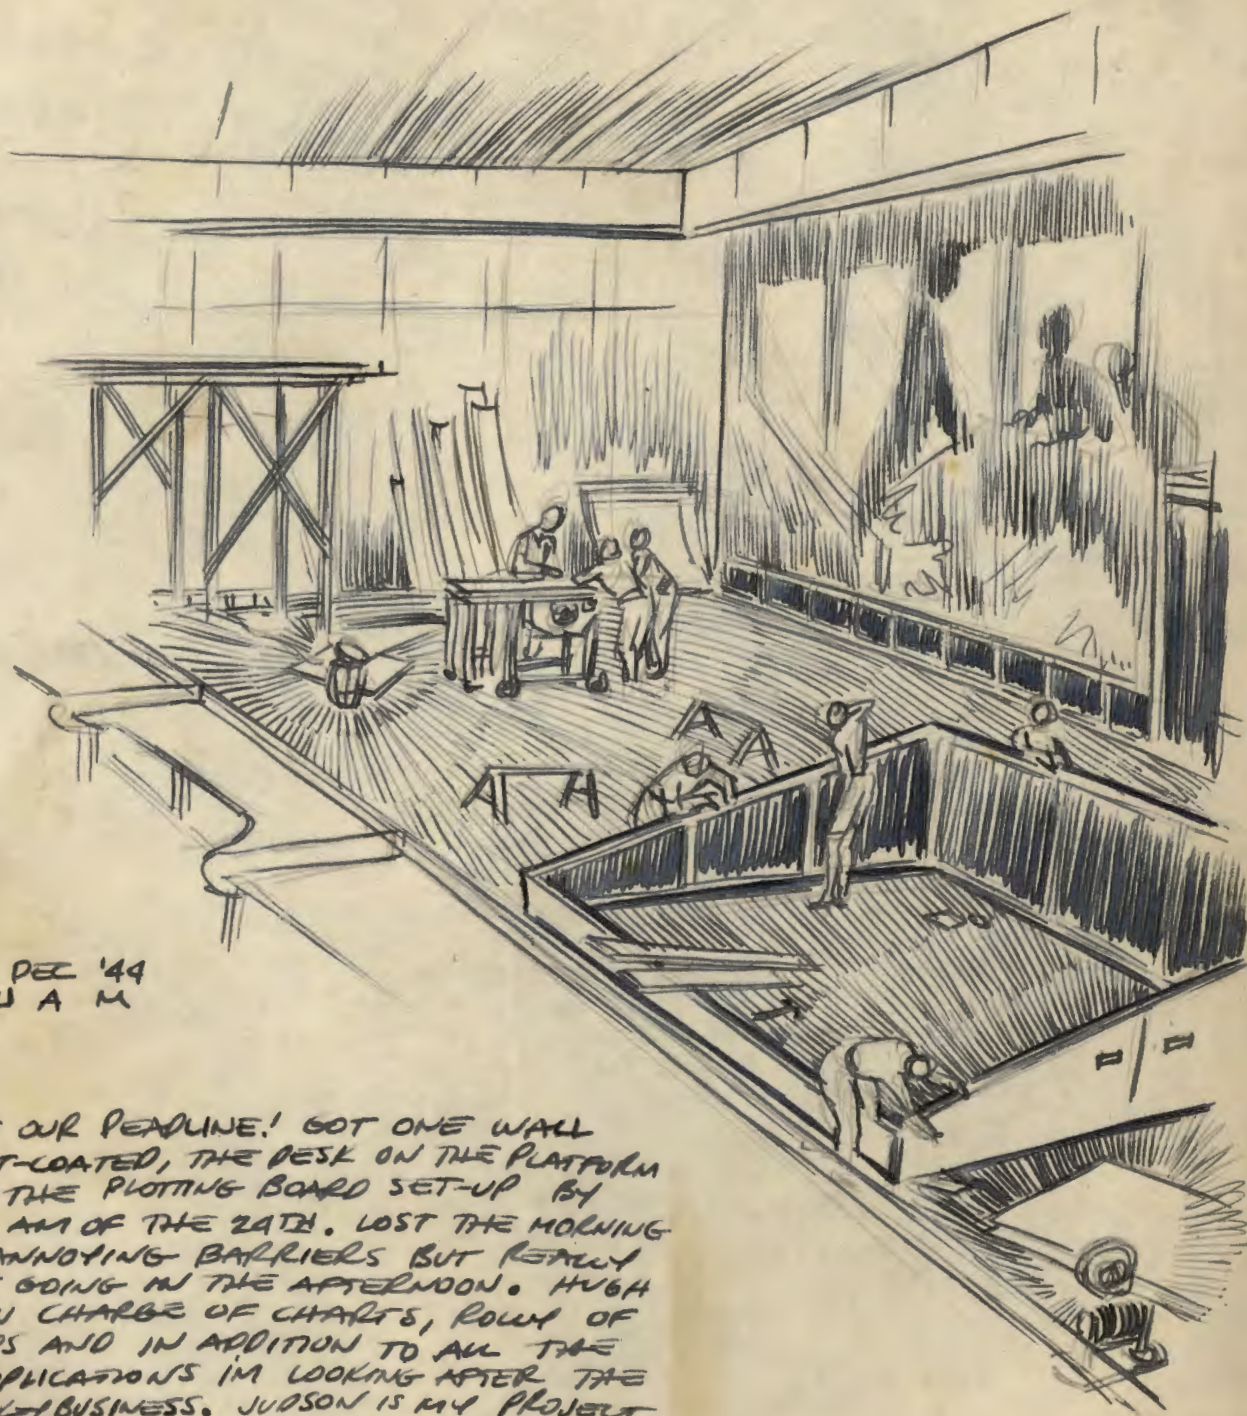 DEC '44
U A M
OUR DEADLINE! GOT ONE WALL
T-COATED, THE DESK ON THE PLATFORM
THE PLOTTING BOARD SET-UP BY
AM OF THE 24TH. LOST THE MORNING
ANNOYING BARRIERS BUT REALLY
GOING IN THE AFTERNOON. HUGH
CHARGE OF CHARTS, ROLLY OF
AND IN ADDITION TO ALL THE
PLICATIONS I'M LOOKING AFTER THE
BUSINESS. JUDSON IS MY PROJECT